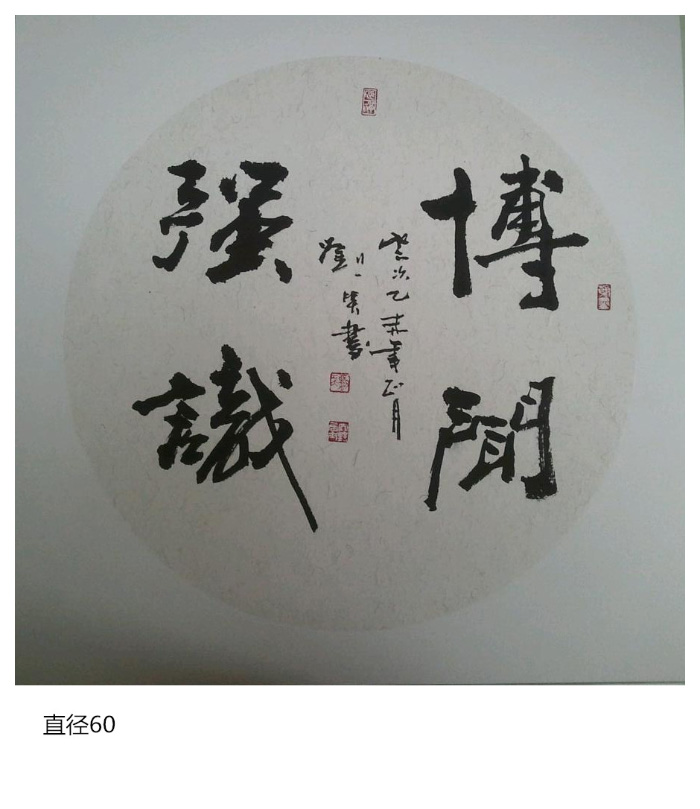 博聞
强識
歲次乙未年正月
書
直径60